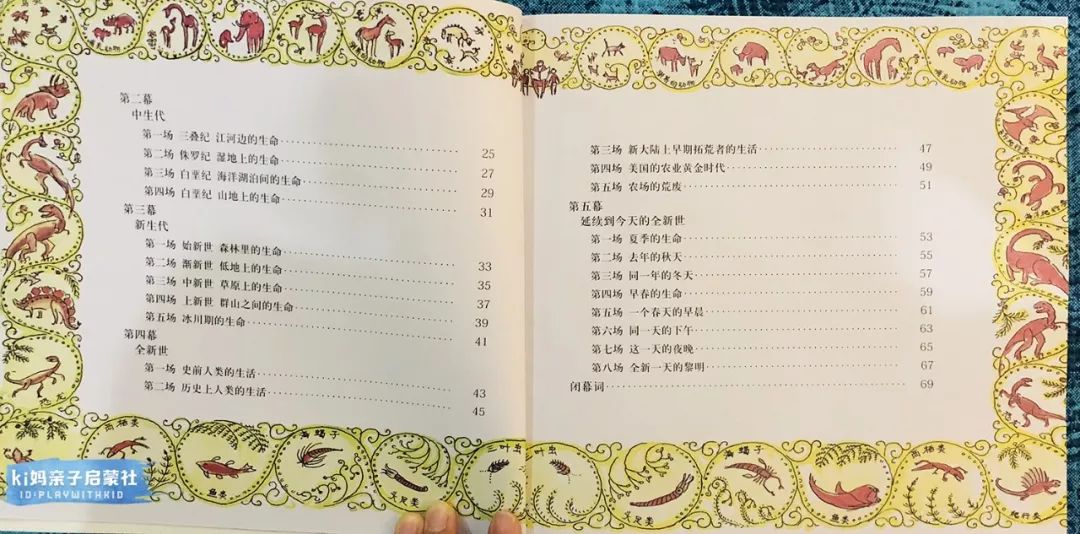 第二幕
中生代
第一场 三叠纪 江河边的生命 25
第二场 侏罗纪 湿地上的生命 27
第三场 白垩纪 海洋湖泊间的生命 29
第四场 白垩纪 山地上的生命 31
第三幕
新生代
第一场 始新世 森林里的生命 33
第二场 渐新世 低地上的生命 35
第三场 中新世 草原上的生命 37
第四场 上新世 群山之间的生命 39
第五场 冰川期的生命 41
第四幕
全新世
第一场 史前人类的生活 43
第二场 历史上人类的生活 45
恐龙
两栖类
鱼类
海蝎子
叶虫
ki妈亲子启蒙社
ID:PLAYWITHKID
第三场 新大陆上早期拓荒者的生活 47
第四场 美国的农业黄金时代 49
第五场 农场的荒废 51
第五幕
延续到今天的全新世
第一场 夏季的生命 53
第二场 去年的秋天 55
第三场 同一年的冬天 57
第四场 早春的生命 59
第五场 一个春天的早晨 61
第六场 同一天的下午 63
第七场 这一天的夜晚 65
第八场 全新一天的黎明 67
闭幕词 69
恐龙
叶虫
海蝎子
鱼类
两栖类
爬行类